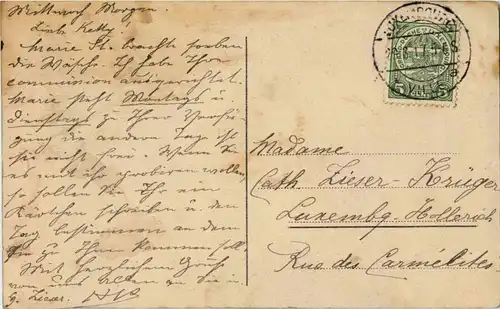 Mittwoch Morgen.
Liebe Ketty!
Marie St. brachte soeben
die Wäsche. Ich habe Ihre
commission ausgerichtet.
Marie steht Montags u
Dienstags zu Ihrer Verfü-
gung die andern Tag ist
sie nicht frei. Wenn Sie
es mit ihr probieren wollen,
so sollen Sie Ihr ein
Kärtchen schreiben u. den
Tag bestimmen an dem
Sie zu Ihnen kommen soll.
Mit herzlichem Gruß
von uns Allen an Sie u.
G. Zieser.
5
5
Madame
Cath. Zieser-Krüger
Luxembg-Hollerich
Rue des Carmélites